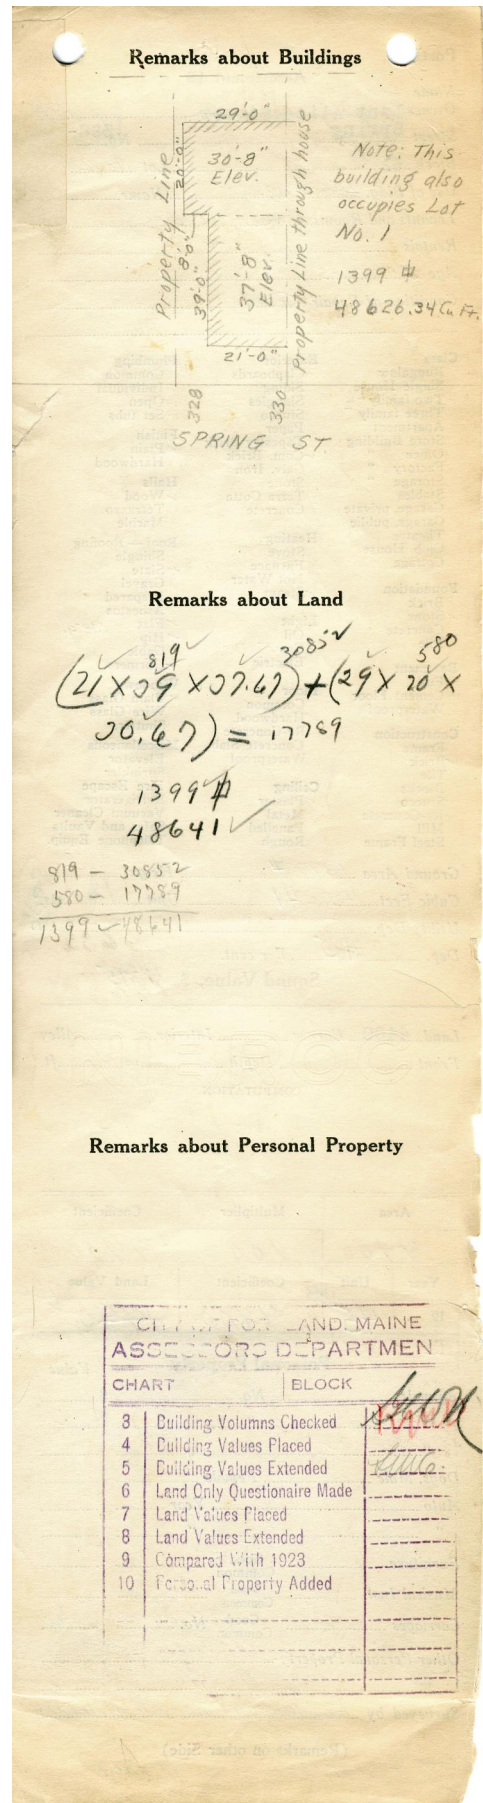 Remarks about Buildings
29'-0"
30'-8"
Elev.
20'-0"
Property Line
8'-0"
39'-0"
37'-8"
Elev.
Property Line through house
21'-0"
Note: This
building also
occupies Lot
No. 1
1399 ⌗
48626.34 Cu Ft.
328
330
SPRING ST
Remarks about Land
819 30852 580
(21 X 39 X 37.67) + (29 X 20 X
30.67) = 17789
1399 ⌗
48641
819 - 30852
580 - 17789
1399 48641
Remarks about Personal Property
CITY OF PORTLAND, MAINE
ASSESSORS DEPARTMEN
CHART BLOCK
3 Building Volumns Checked
4 Building Values Placed
5 Building Values Extended
6 Land Only Questionaire Made
7 Land Values Placed
8 Land Values Extended
9 Compared With 1923
10 Personal Property Added